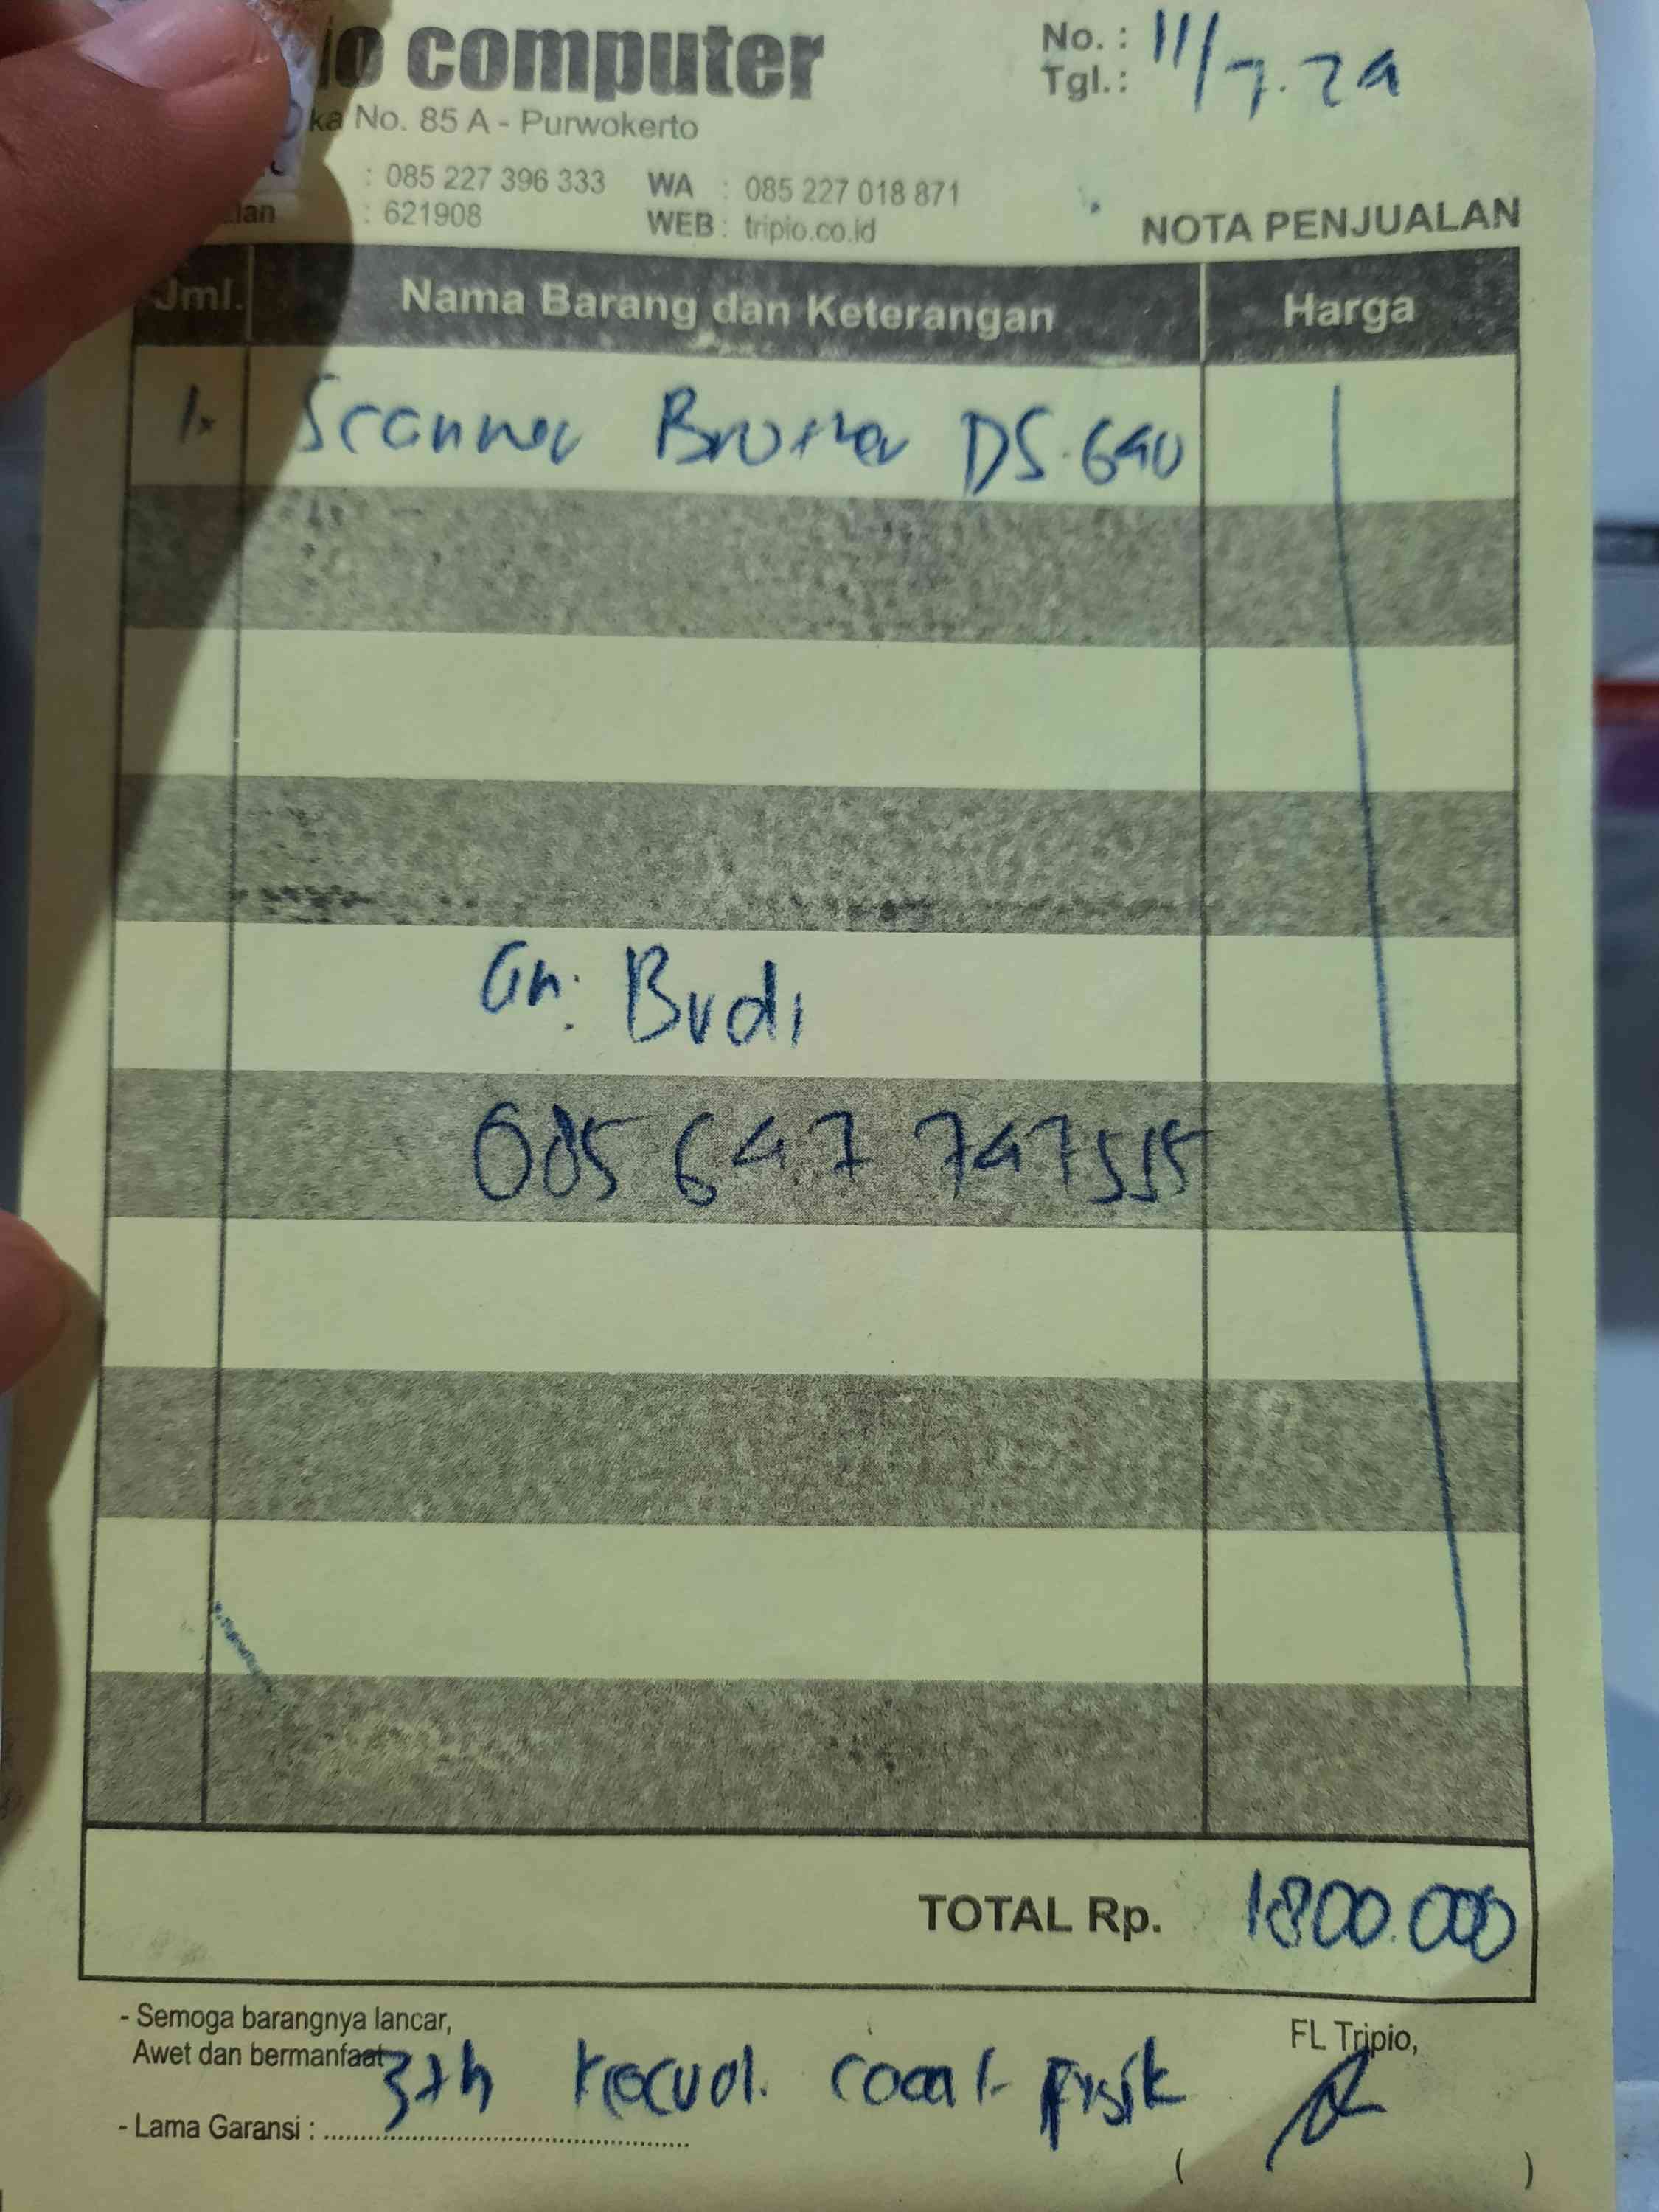 io computer
ka No. 85 A - Purwokerto
: 085 227 396 333 WA : 085 227 018 871
: 621908 WEB : tripio.co.id
No. :
Tgl. : 11/7.24
NOTA PENJUALAN
Jml. Nama Barang dan Keterangan Harga
1x Scanner Brother DS-640
an: Budi
085 647 747555
TOTAL Rp. 1800.000
- Semoga barangnya lancar,
Awet dan bermanfaat
- Lama Garansi : 3th kecual. cacat fisik
FL Tripio,
( )